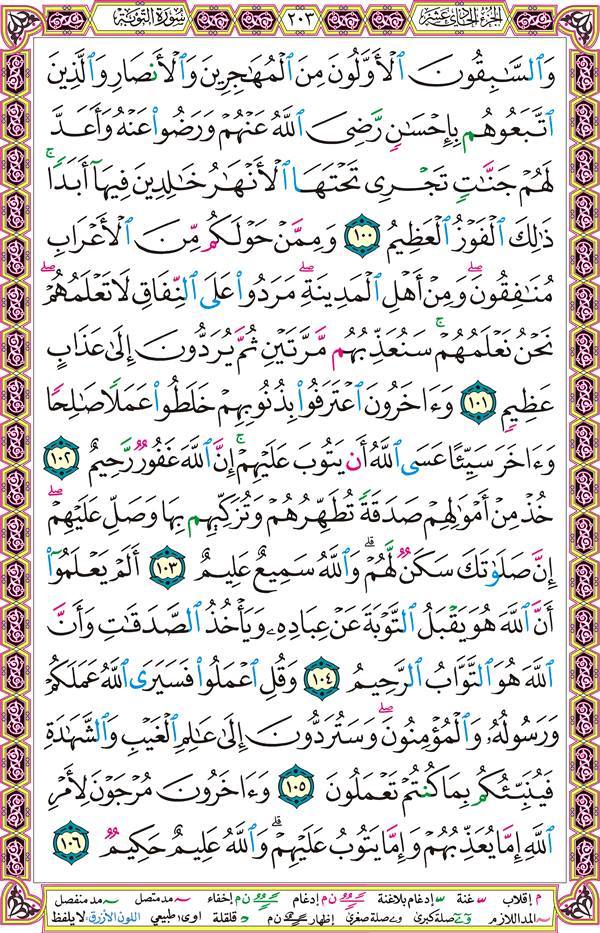 الجزء الحادي عشر ٢٠٣ سورة التوبة
وَٱلسَّٰبِقُونَ ٱلْأَوَّلُونَ مِنَ ٱلْمُهَٰجِرِينَ وَٱلْأَنصَارِ وَٱلَّذِينَ
ٱتَّبَعُوهُم بِإِحْسَٰنٍ رَّضِيَ ٱللَّهُ عَنْهُمْ وَرَضُوا۟ عَنْهُ وَأَعَدَّ
لَهُمْ جَنَّٰتٍ تَجْرِى تَحْتَهَا ٱلْأَنْهَٰرُ خَٰلِدِينَ فِيهَآ أَبَدًا ۚ
ذَٰلِكَ ٱلْفَوْزُ ٱلْعَظِيمُ ١٠٠ وَمِمَّنْ حَوْلَكُم مِّنَ ٱلْأَعْرَابِ
مُنَٰفِقُونَ ۖ وَمِنْ أَهْلِ ٱلْمَدِينَةِ ۖ مَرَدُوا۟ عَلَى ٱلنِّفَاقِ لَا تَعْلَمُهُمْ ۖ
نَحْنُ نَعْلَمُهُمْ ۚ سَنُعَذِّبُهُم مَّرَّتَيْنِ ثُمَّ يُرَدُّونَ إِلَىٰ عَذَابٍ
عَظِيمٍ ١٠١ وَءَاخَرُونَ ٱعْتَرَفُوا۟ بِذُنُوبِهِمْ خَلَطُوا۟ عَمَلًا صَٰلِحًا
وَءَاخَرَ سَيِّئًا عَسَى ٱللَّهُ أَن يَتُوبَ عَلَيْهِمْ ۚ إِنَّ ٱللَّهَ غَفُورٌ رَّحِيمٌ ١٠٢
خُذْ مِنْ أَمْوَٰلِهِمْ صَدَقَةً تُطَهِّرُهُمْ وَتُزَكِّيهِم بِهَا وَصَلِّ عَلَيْهِمْ ۖ
إِنَّ صَلَوٰتَكَ سَكَنٌ لَّهُمْ ۗ وَٱللَّهُ سَمِيعٌ عَلِيمٌ ١٠٣ أَلَمْ يَعْلَمُوٓا۟
أَنَّ ٱللَّهَ هُوَ يَقْبَلُ ٱلتَّوْبَةَ عَنْ عِبَادِهِۦ وَيَأْخُذُ ٱلصَّدَقَٰتِ وَأَنَّ
ٱللَّهَ هُوَ ٱلتَّوَّابُ ٱلرَّحِيمُ ١٠٤ وَقُلِ ٱعْمَلُوا۟ فَسَيَرَى ٱللَّهُ عَمَلَكُمْ
وَرَسُولُهُۥ وَٱلْمُؤْمِنُونَ ۖ وَسَتُرَدُّونَ إِلَىٰ عَٰلِمِ ٱلْغَيْبِ وَٱلشَّهَٰدَةِ
فَيُنَبِّئُكُم بِمَا كُنتُمْ تَعْمَلُونَ ١٠٥ وَءَاخَرُونَ مُرْجَوْنَ لِأَمْرِ
ٱللَّهِ إِمَّا يُعَذِّبُهُمْ وَإِمَّا يَتُوبُ عَلَيْهِمْ ۗ وَٱللَّهُ عَلِيمٌ حَكِيمٌ ١٠٦
م إقلاب غنة إدغام بلاغنة ن م إدغام ن م إخفاء مد متصل مد منفصل
المد اللازم صلة كبرى صلة صغرى إظهار ن م قلقلة ا و ى طبيعي اللون الأزرق: لا يلفظ